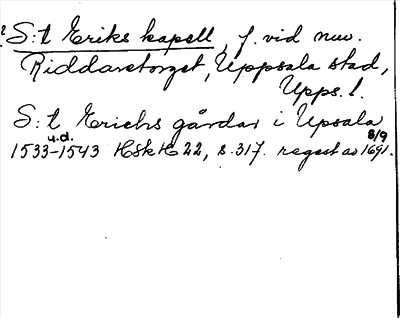 S:t Eriks kapell, f. vid nuv.
Riddaretorget, Uppsala stad,
Upps. l.
S:t Erichs gårdar i Upsala
1533-1543 u.d. HSH 22, s. 317. regest av 8/9 1691.